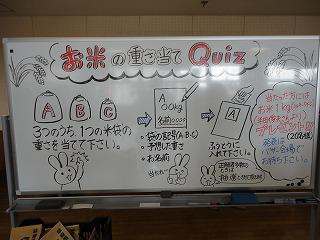 お米の重さ当てQuiz
A B C
3つのうち、1つの米袋の
重さを当てて下さい。
A
00kg
名前○○○○
・袋の記号(A・B・C)
・予想した重さ
・お名前
当たれー
A
ふうとうに
入れて下さい。
正解者多数の
ときは
抽選とさせて頂きます
当たった方には
お米1kg
プレゼント!!
(20名様)
発表は
バザー会場で
お待ち下さい。